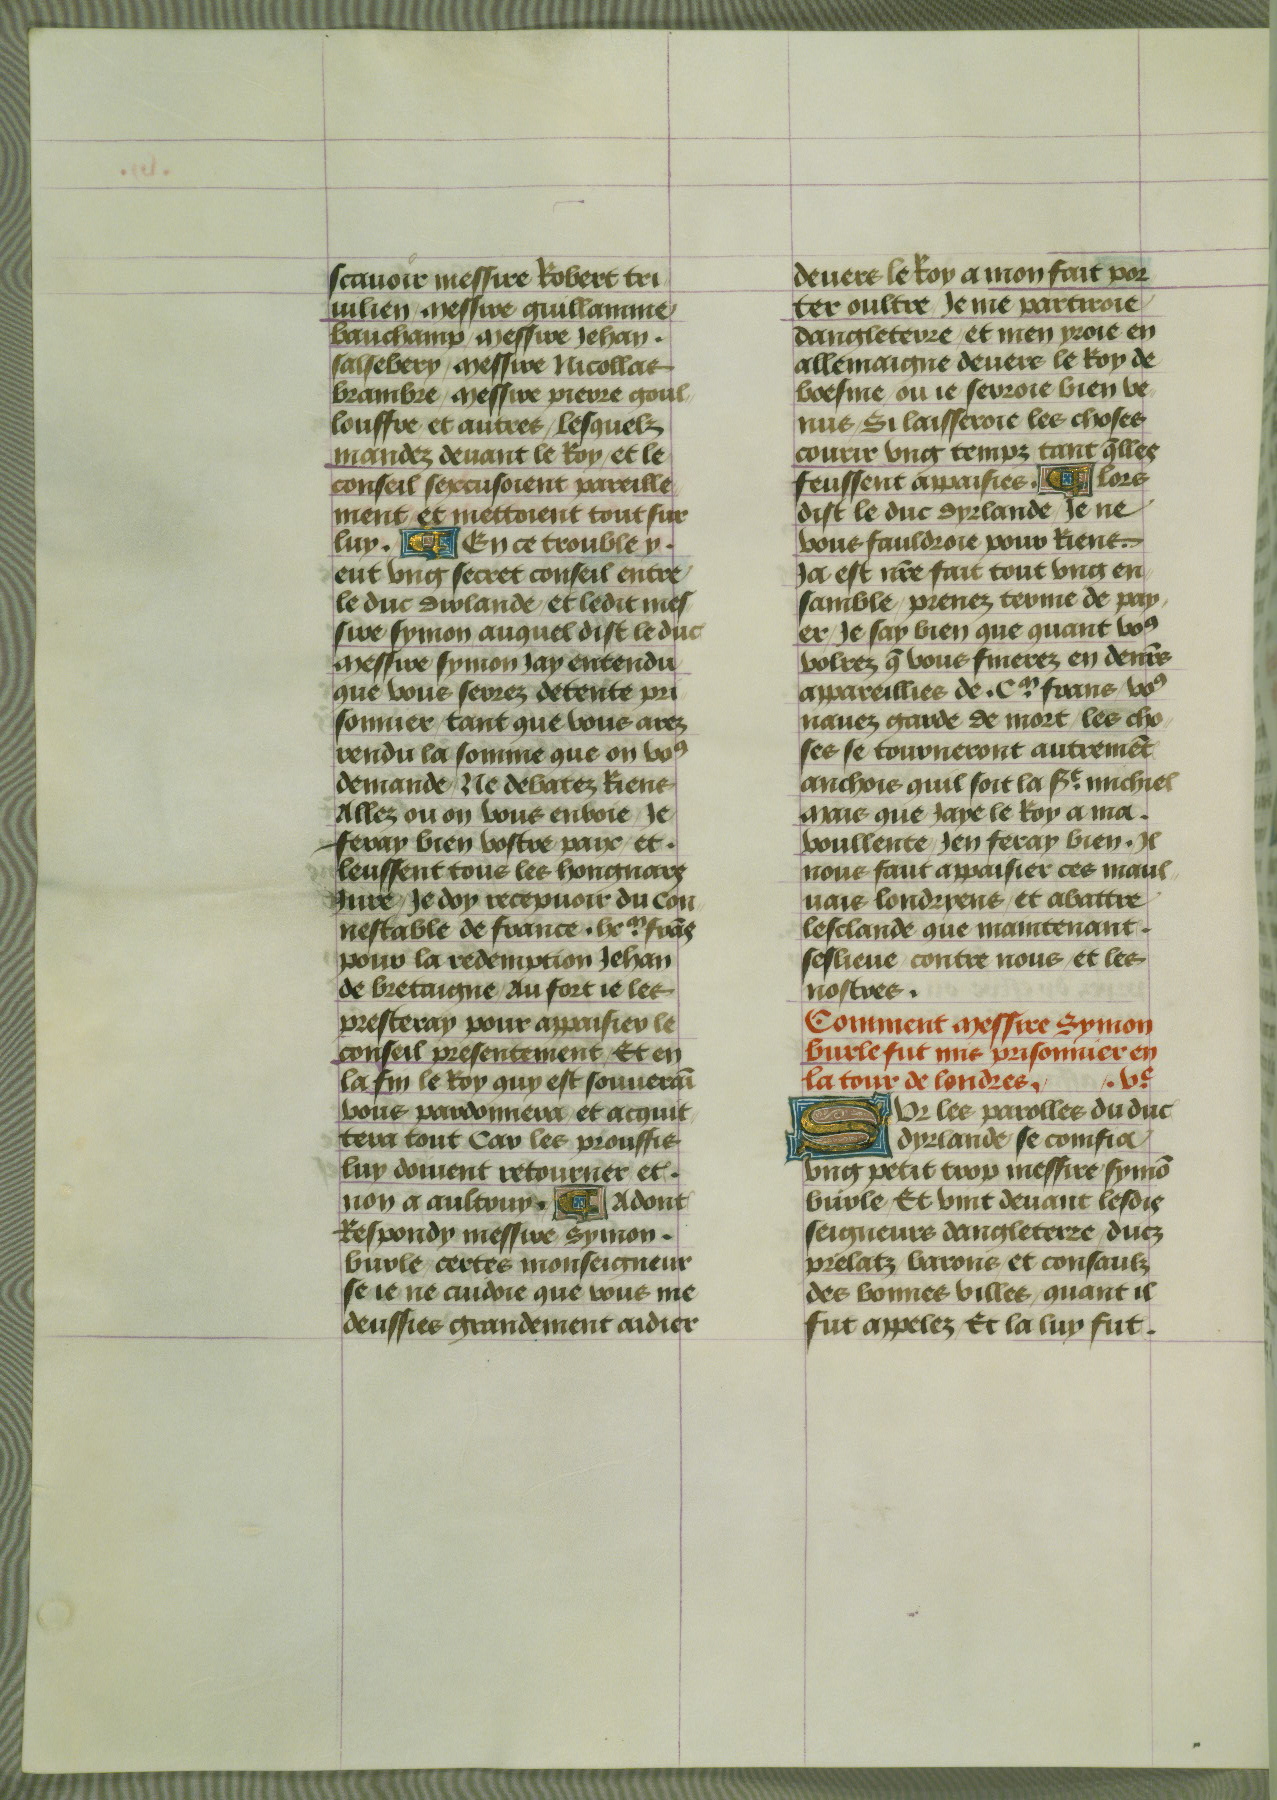 scauoir messire Robert tri
uilien / messire guillamme
bauchamp / messire Jehan .
salsebery / messire Nicollas
brambre / messire pierre goul
louffre et autres / Lesquelz
mandez deuant le Roy / et le
conseil sexcusoient pareille
ment / et mettoient tout sur
luy . En ce trouble y .
eut vng secret conseil entre
le duc dirlande / et ledit mes
sire symon auquel dist le duc
messire symon Jay entendu
que vous serez detente pri
sonnier / tant que vous arez
rendu la somme que on voꝰ
demande / Ne debatez Riens
Allez ou on vous enuoie / Je
feray bien vostre paix / et .
leussent tous les hongnars
Jure / Je doy recepuoir du Con
nestable de france . lxᵐ frãs
pour la redemption Jehan
de bretaigne / Au fort ie les
presteray pour appaisier le
conseil presentement Et en
la fin le Roy quy est souueraĩ
vous pardonnera / et acquit
tera tout Car les prouffis
luy doiuent retourner et .
non a aultruy . Adont
Respondy messire Symon .
burle / certes monseigneur
se ie ne cuidoie que vous me
deussies grandement aidier
deuers le Roy a mon fait por
ter oultre / Je me partiroie
dangleterre / et men yroie en
allemaigne deuers le Roy de
boesme / ou ie seroie bien ve
nus / Si laisseroie les choses
courir vng tempz tant q̃lles
feussent appaisies . Alors
dist le duc dyrlande / Je ne
vous fauldroie pour Riens
Ja est nr̃e fait tout vng en
samble / prenez terme de pay
er / Je say bien que quant voꝰ
volrez q̃ vous finerez en denr̃s
appareillies de . Cᵐ frans / voꝰ
nauez garde de mort / les cho
ses se tourneront autremẽt
anchois quil soit la Sᵗ michiel
mais que Jaye le Roy a ma .
voullente / Jen feray bien . Il
nous faut appaisier ces maul
uais londryens / et abattre
lesclande que maintenant .
seslieue contre nous et les
nostres .
Comment messire Symon
burle fut mis prisonnier en
la tour de londres . . vᵉ
Sur les parolles du duc
dyrlande / se comfia
vng petit trop messire symõ
burle / Et vint deuant lesdis
seigneurs dangleterre / ducz
prelatz / barons et consaulz
des bonnes villes / quant il
fut appelez / Et la luy fut .